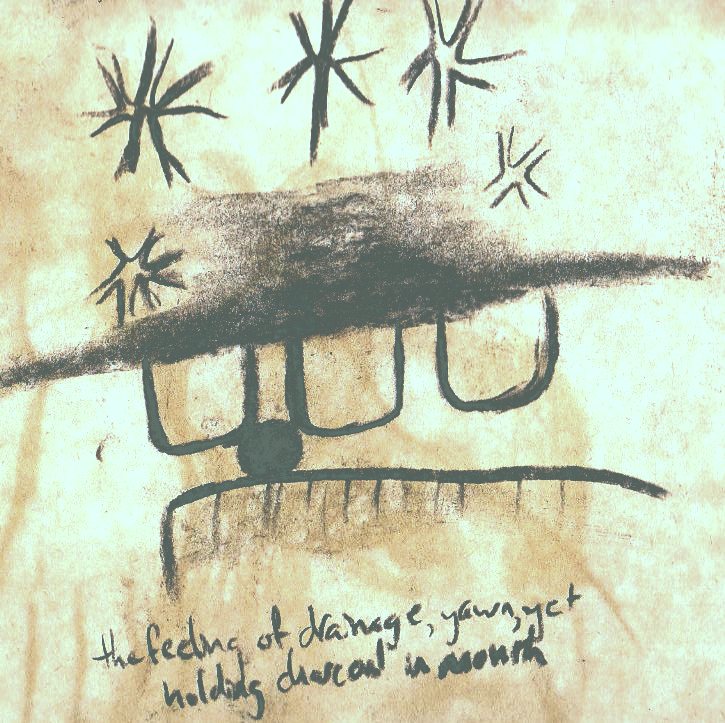 the feeling of drainage, yawn, yet
holding charcoal in mouth